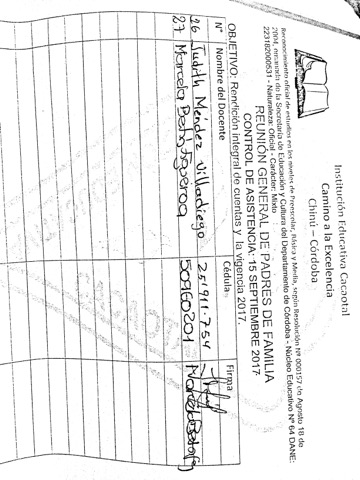 Institución Educativa Cacaotal
Camino a la Excelencia
Chinú – Córdoba
Reconocimiento oficial de estudios en los niveles de Preescolar, Básica y Media, según Resolución Nº 000157 de Agosto 18 de
2004, emanada de la Secretaría de Educación y Cultura del Departamento de Córdoba - Núcleo Educativo Nº 64 DANE:
223182000531 - Naturaleza: Oficial - Carácter: Mixto
REUNIÓN GENERAL DE PADRES DE FAMILIA
CONTROL DE ASISTENCIA: 15 SEPTIEMBRE 2017
OBJETIVO: Rendición integral de cuentas y la vigencia 2017.
N° Nombre del Docente Cédula Firma
26 Judith Méndez Villadiego 25'911.754
27 Marcela Figueroa 50960201 Marcela